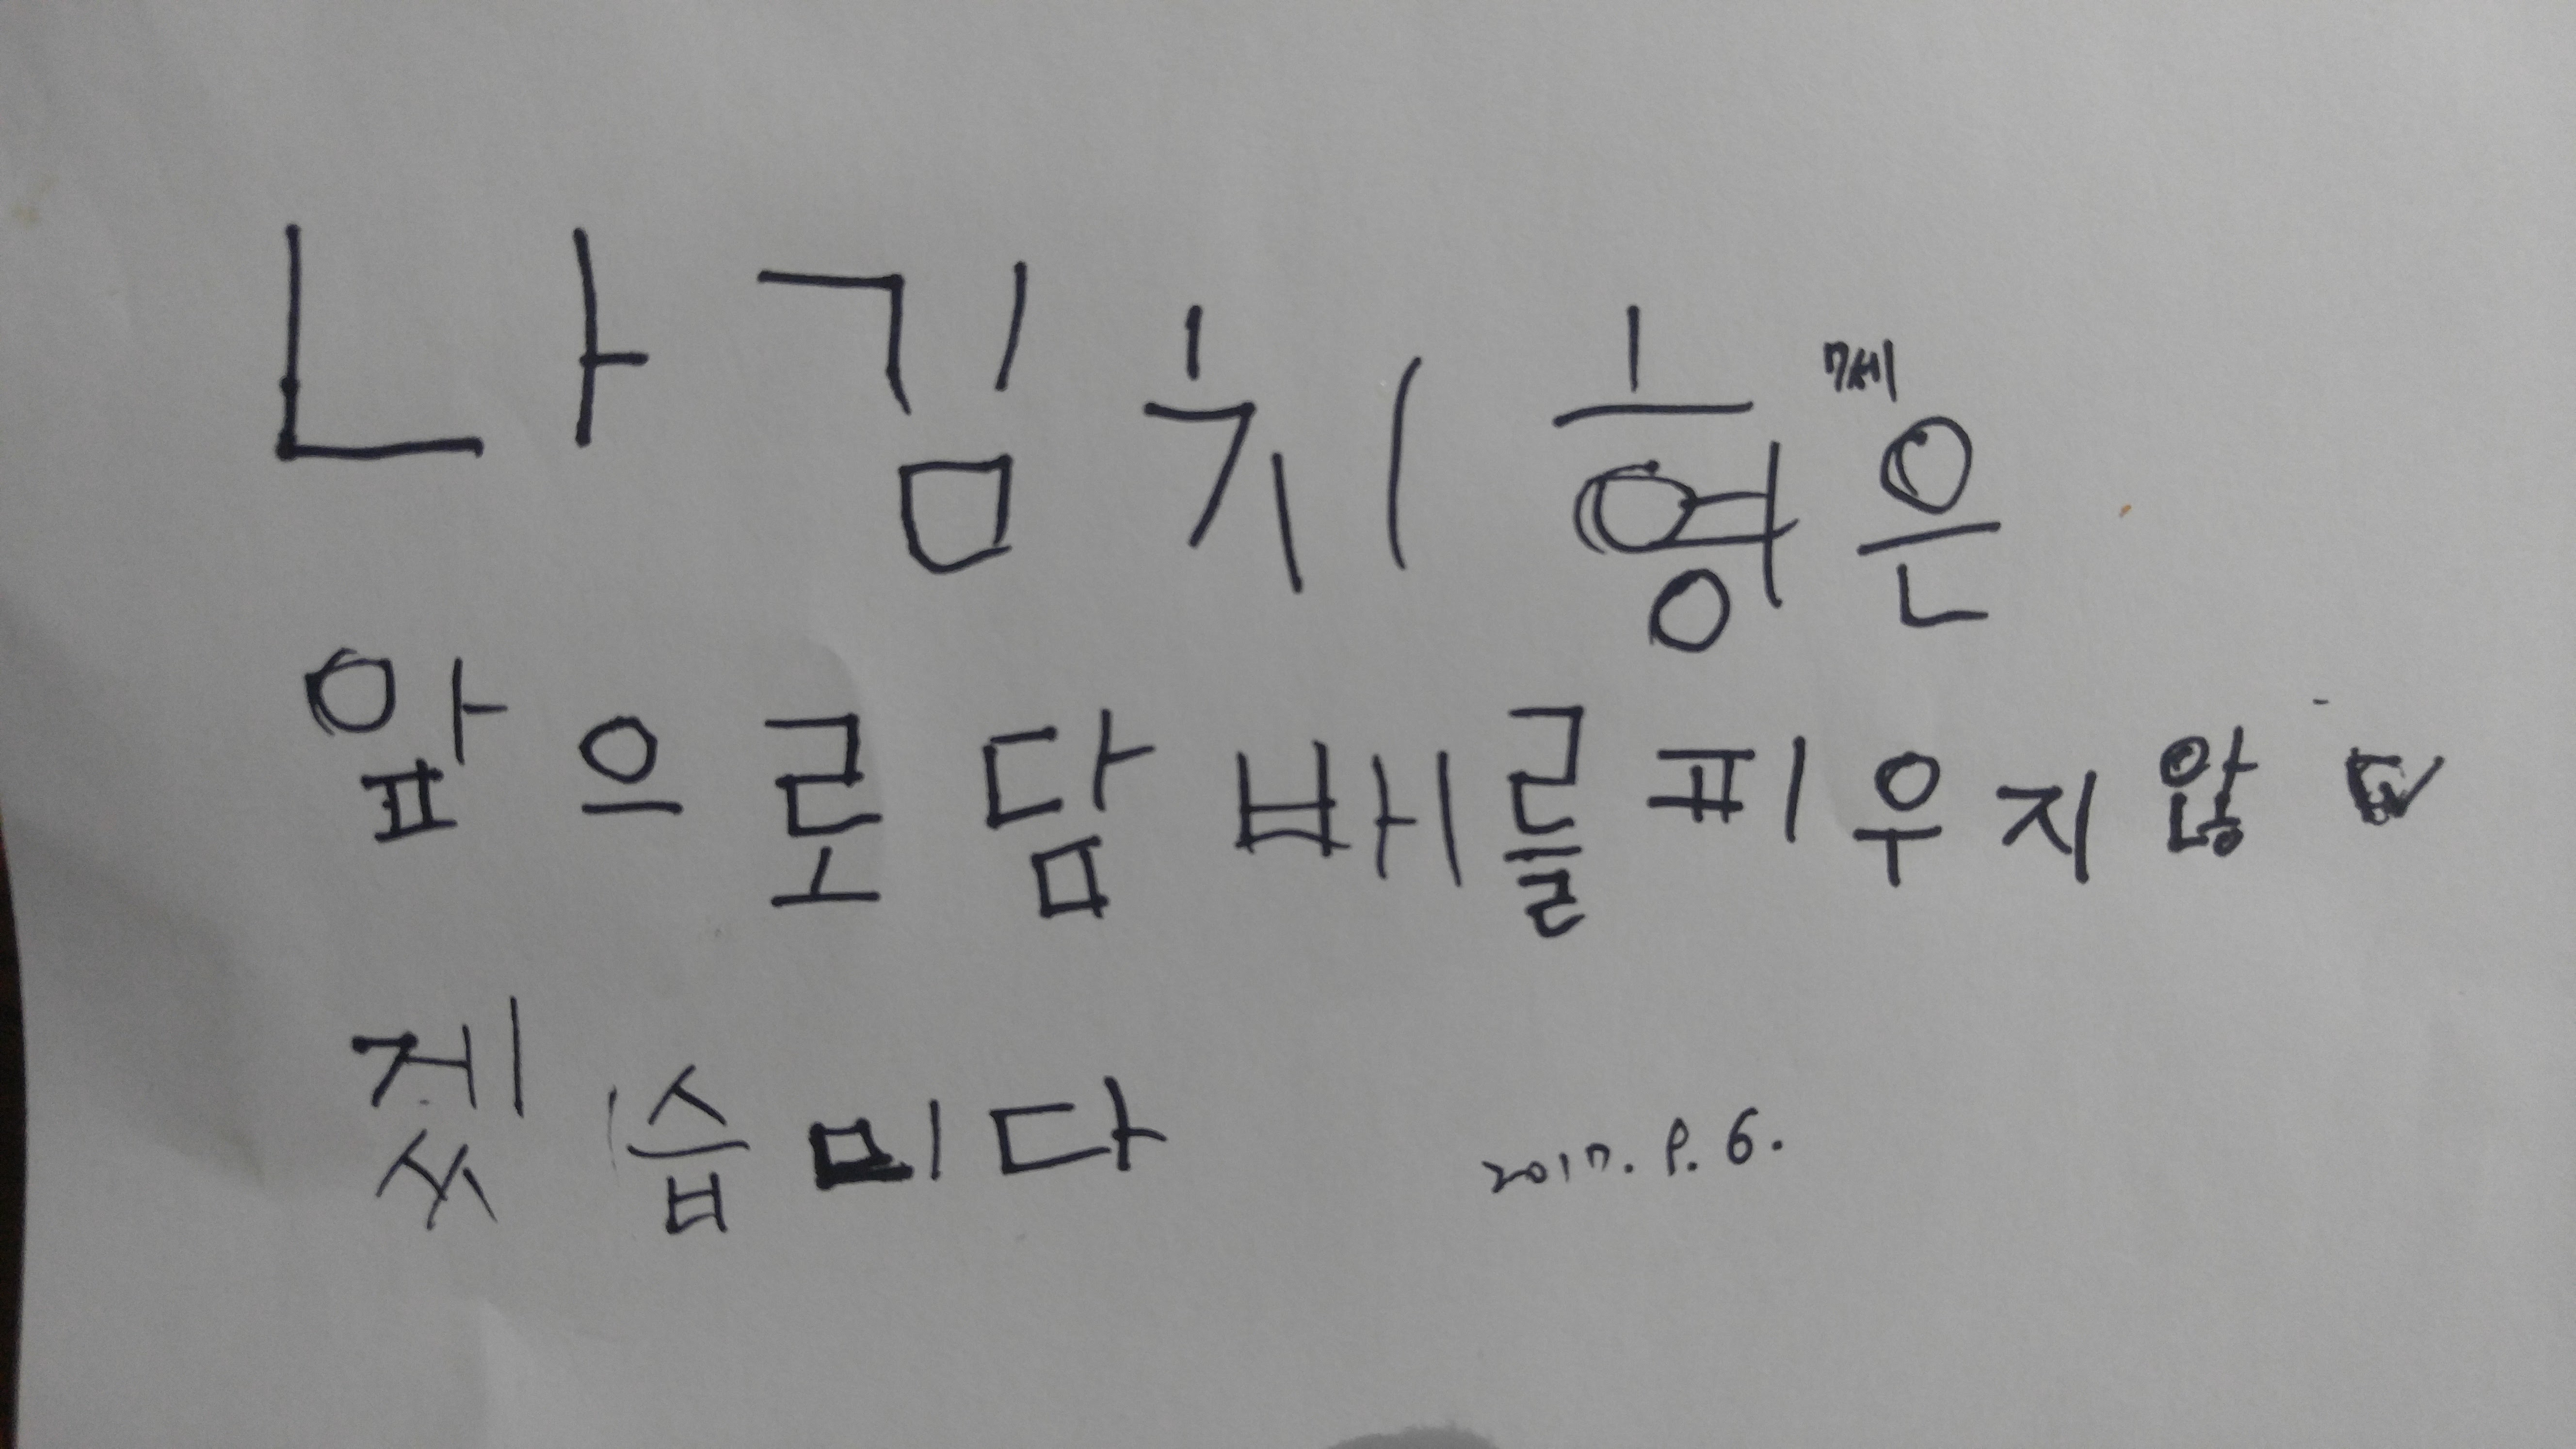 나 김치형 7세 은
앞으로 담배를 피우지 않
겠습미다 2017. 8. 6.